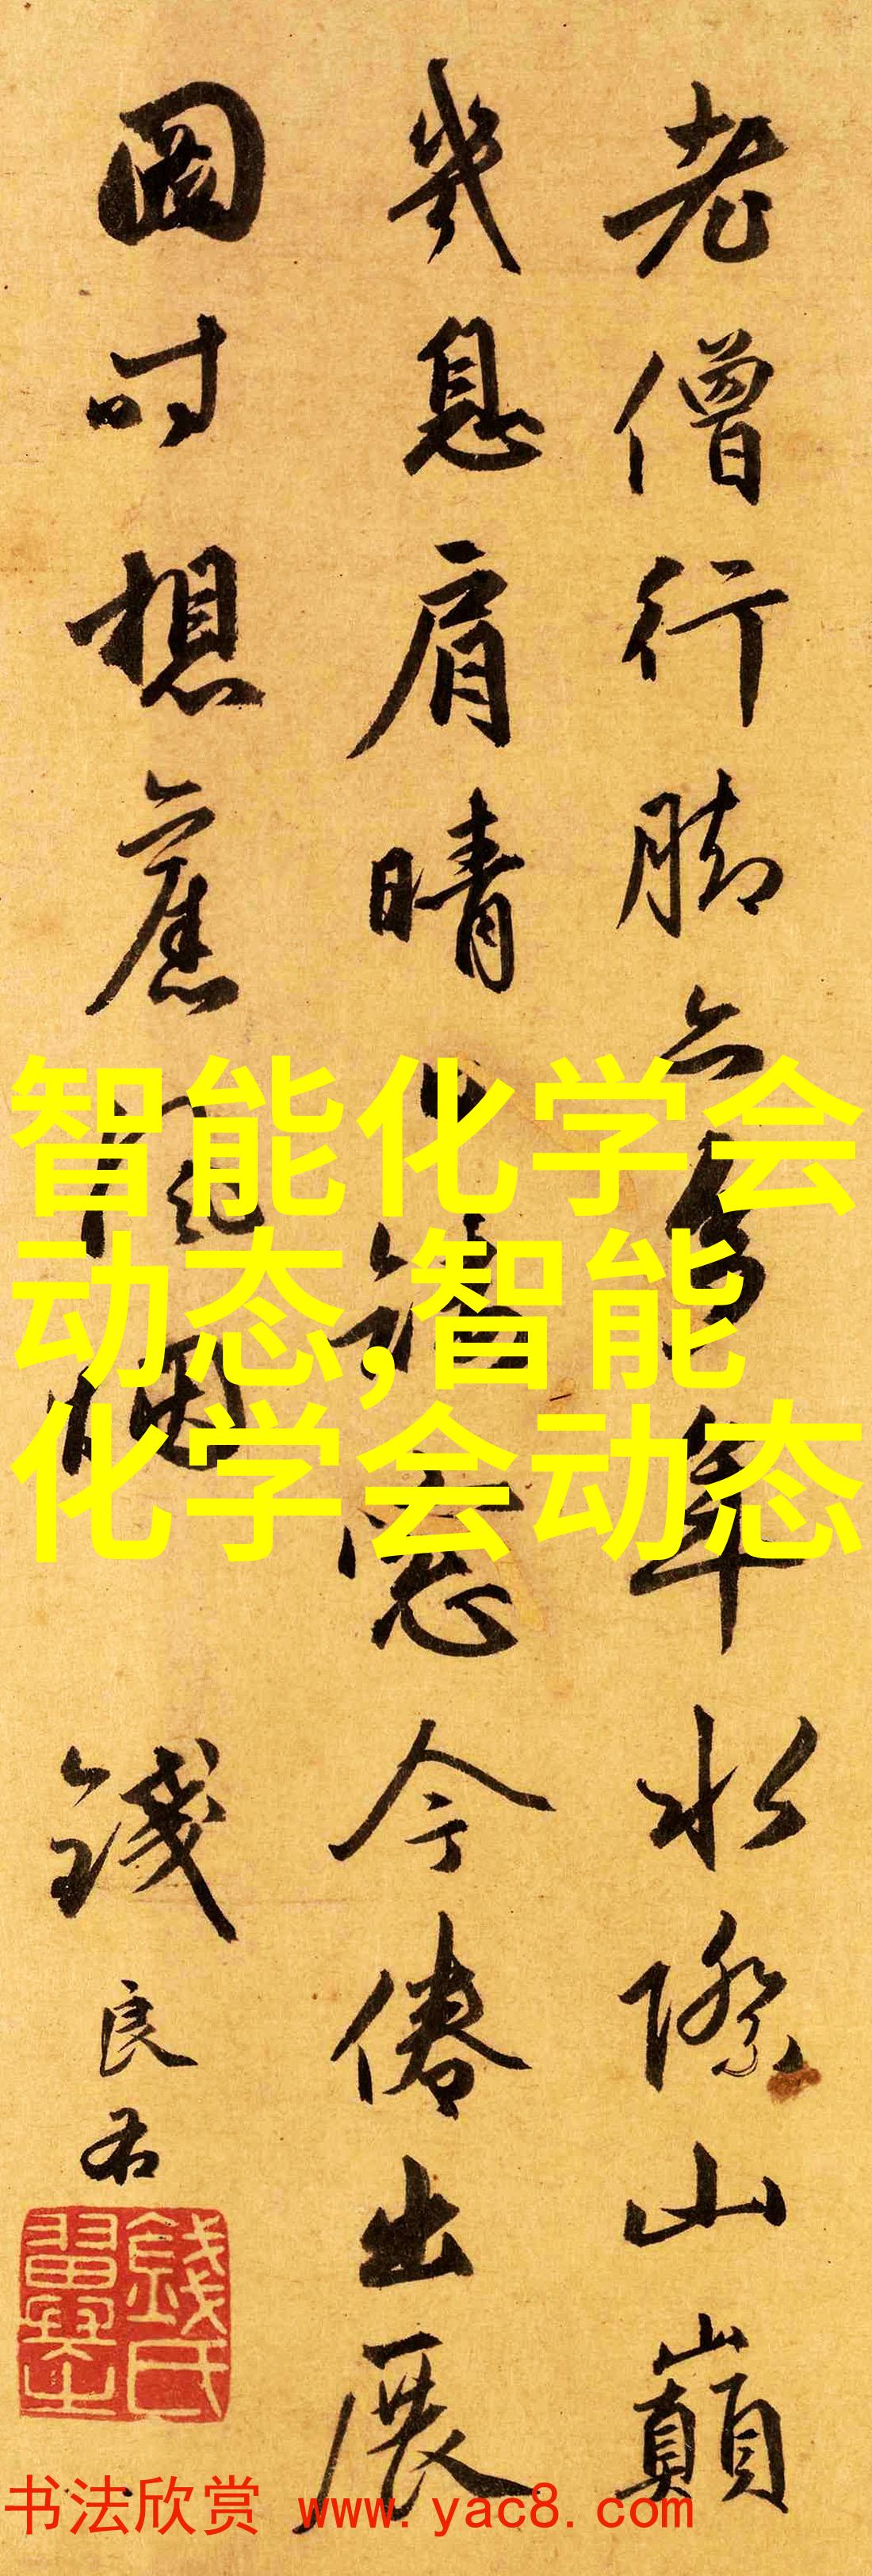 老僧行脚年水際山巔
幾息肩晴窓今倦出展
圖時想舊風烟
錢良右
錢氏翼之
智能化学会
动态,智能
化学会动态
书法欣赏 www.yac8.com